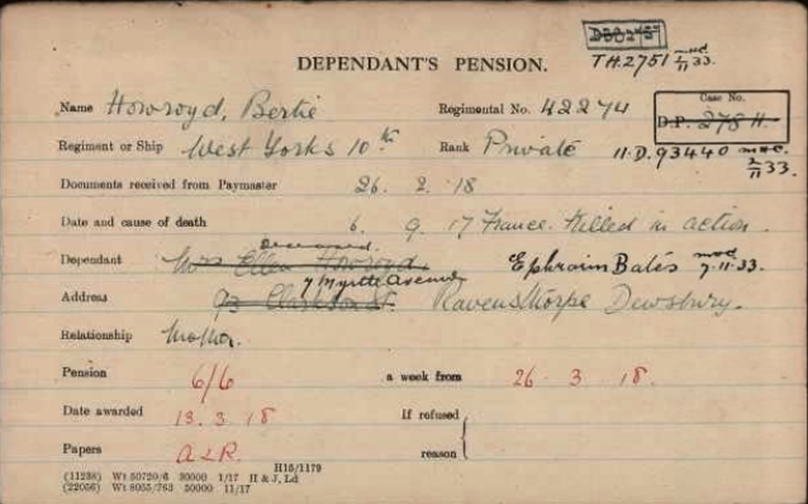 DEPENDANT'S PENSION.
TH.2751 2/11 33.
Name Howroyd, Bertie Regimental No. 42274 Case No.
Regiment or Ship West Yorks 10th Rank Private D.P. 278 H.
11.D.93440 2/11 33.
Documents received from Paymaster 26. 2. 18
Date and cause of death 6. 9. 17 France. Killed in action.
Deceased.
Dependant Mrs Ellen Howroyd. Ephraim Bates 7.11.33.
7 Myrtle Avenue
Address 93 Clarkson St. Ravensthorpe Dewsbury.
Relationship Mother.
Pension 6/6 a week from 26 3 18.
Date awarded 13. 3. 18 If refused
Papers reason
H16/1179
(11238) Wt 50720/6 30000 1/17 H & J, Ld
(22056) Wt 8055/763 50000 11/17